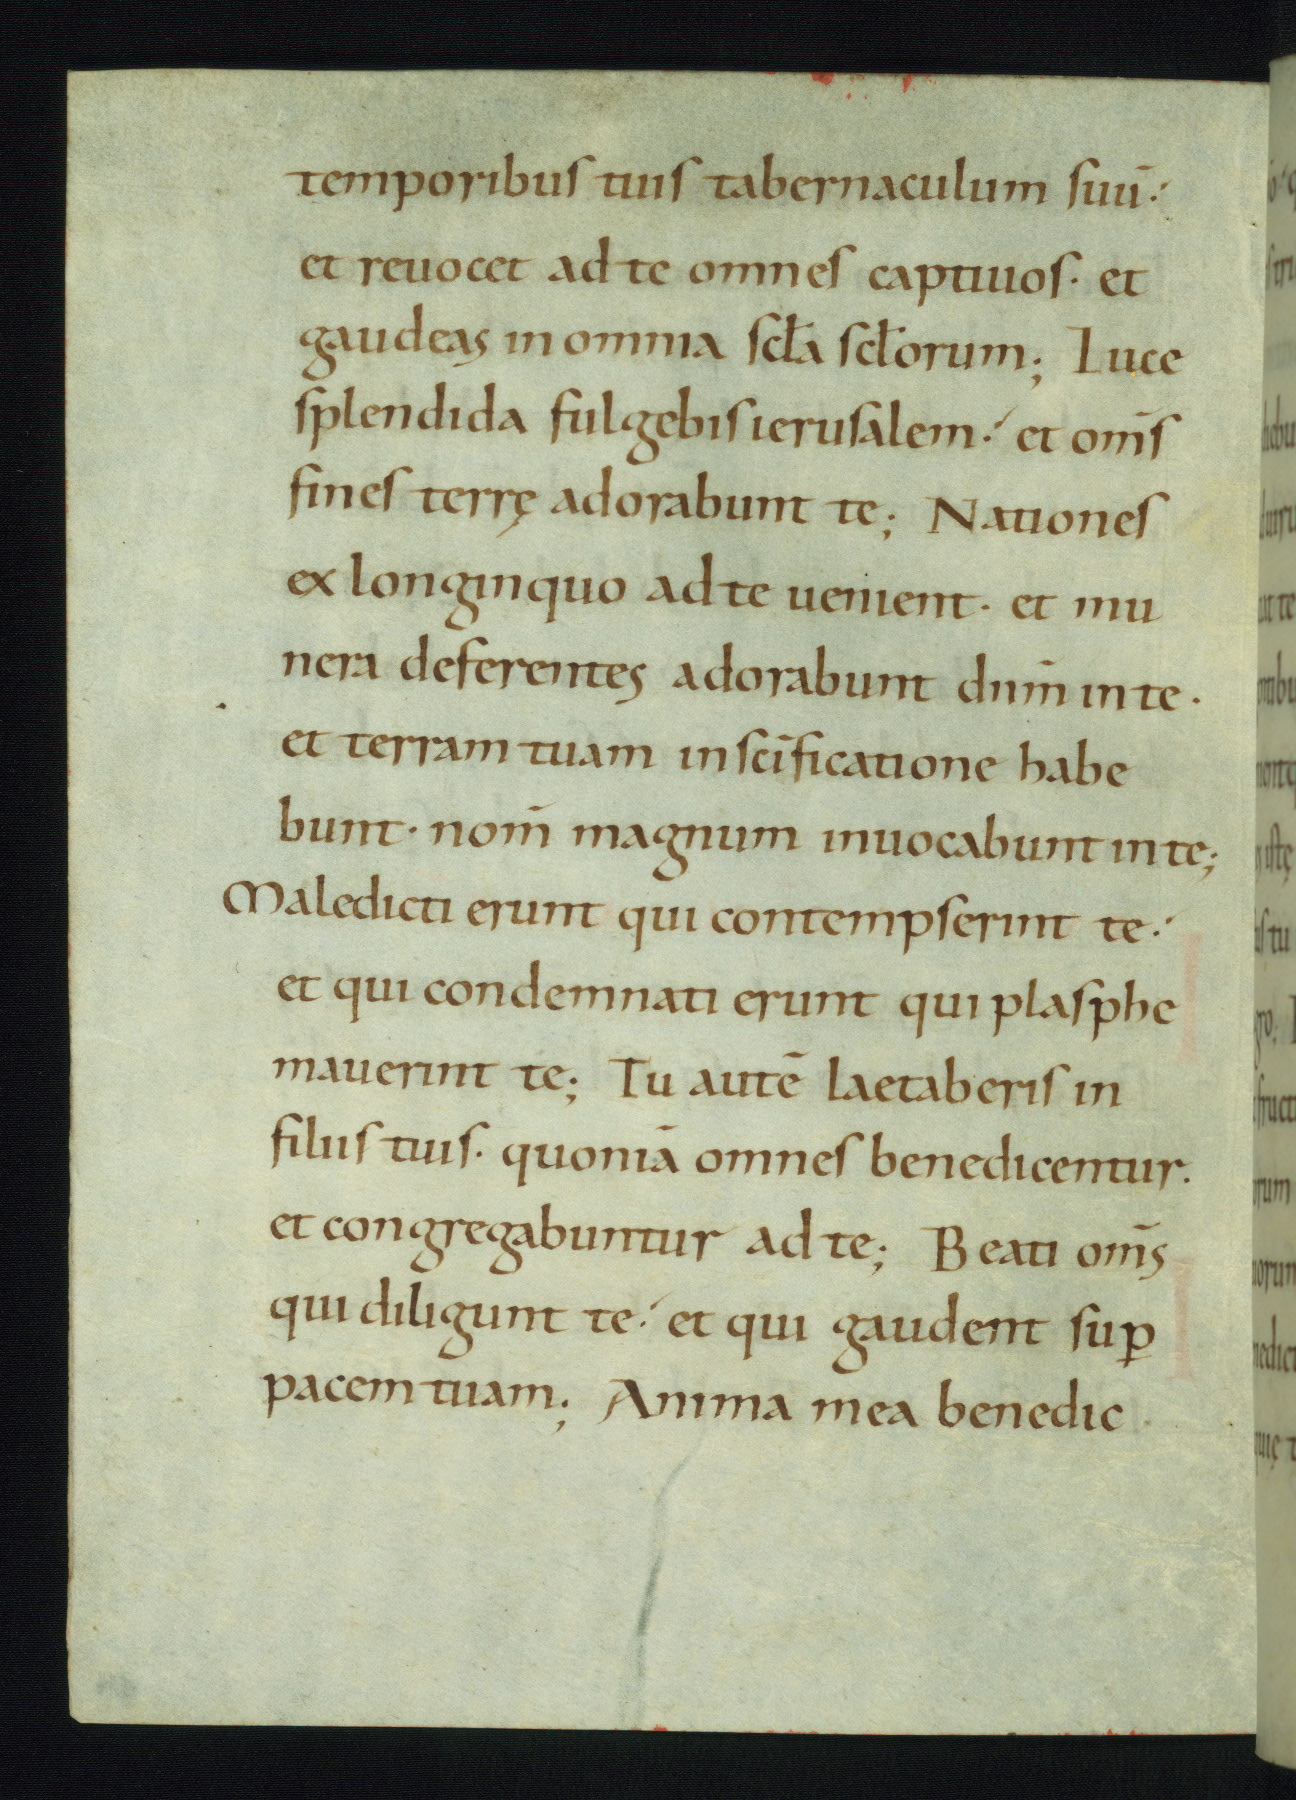 temporibus tuis tabernaculum suū·
et reuocet ad te omnes captiuos· et
gaudeas in omnia scła scłorum; Luce
splendida fulgebis ierusalem· et om̄s
fines terrę adorabunt te; Nationes
ex longinquo ad te uenient· et mu
nera deferentes adorabunt dnm̄ in te·
et terram tuam in sc̄ificatione habe
bunt· nom̄ magnum inuocabunt in te;
Maledicti erunt qui contempserint te·
et qui condemnati erunt qui plasphe
mauerint te; Tu autē laetaberis in
filiis tuis· quoniā omnes benedicentur·
et congregabuntur ad te; Beati om̄s
qui diligunt te· et qui gaudent suꝑ
pacem tuam; Anima mea benedic